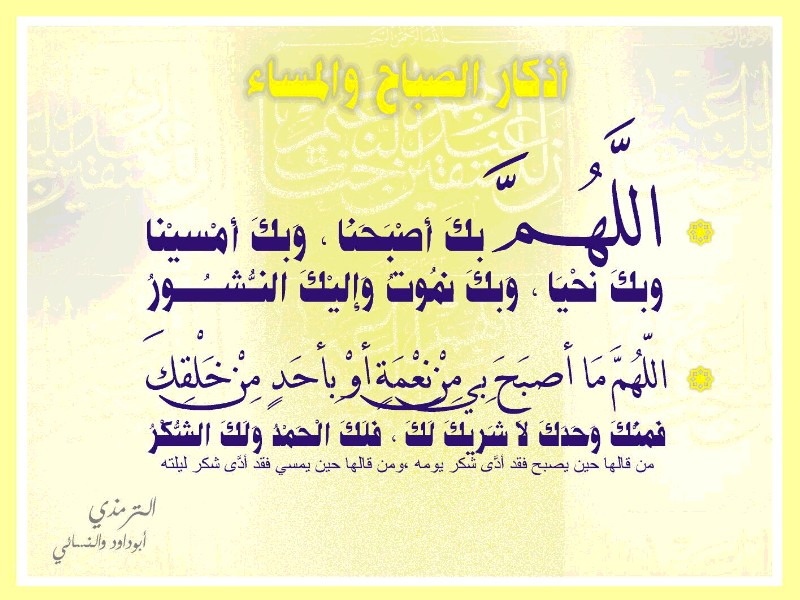 أذكار الصباح والمساء
اللَّهُمَّ بِكَ أصْبَحَنَا ، وَبِكَ أمْسَيْنا
وَبِكَ نحْيَا ، وَبِكَ نمُوتُ وَإليْكَ النُّشُورُ
اللّهُمَّ مَا أصبَحَ بِي مِنْ نعْمَةٍ أوْ بأحَدٍ مِنْ خَلْقِكَ
فَمِنْكَ وَحدَكَ لا شَريكَ لَكَ ، فَلَكَ الْحَمْدُ وَلَكَ الشُّكْرُ
من قالها حين يصبح فقد أدَّى شكر يومه ،ومن قالها حين يمسي فقد أدَّى شكر ليلته
الترمذي
أبوداود والنسائي